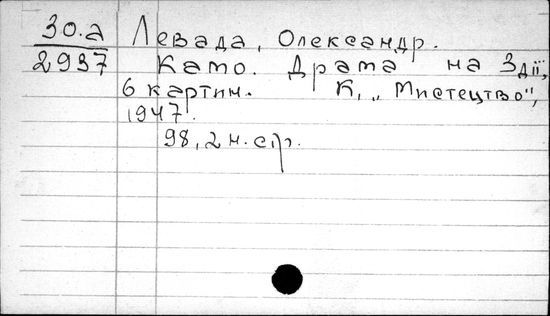 30.а Левада, Олександр.
2937 Камо. Драма на 3 дії,
6 картин. К., „Мистецтво",
1947.
98, 2 н. стр.